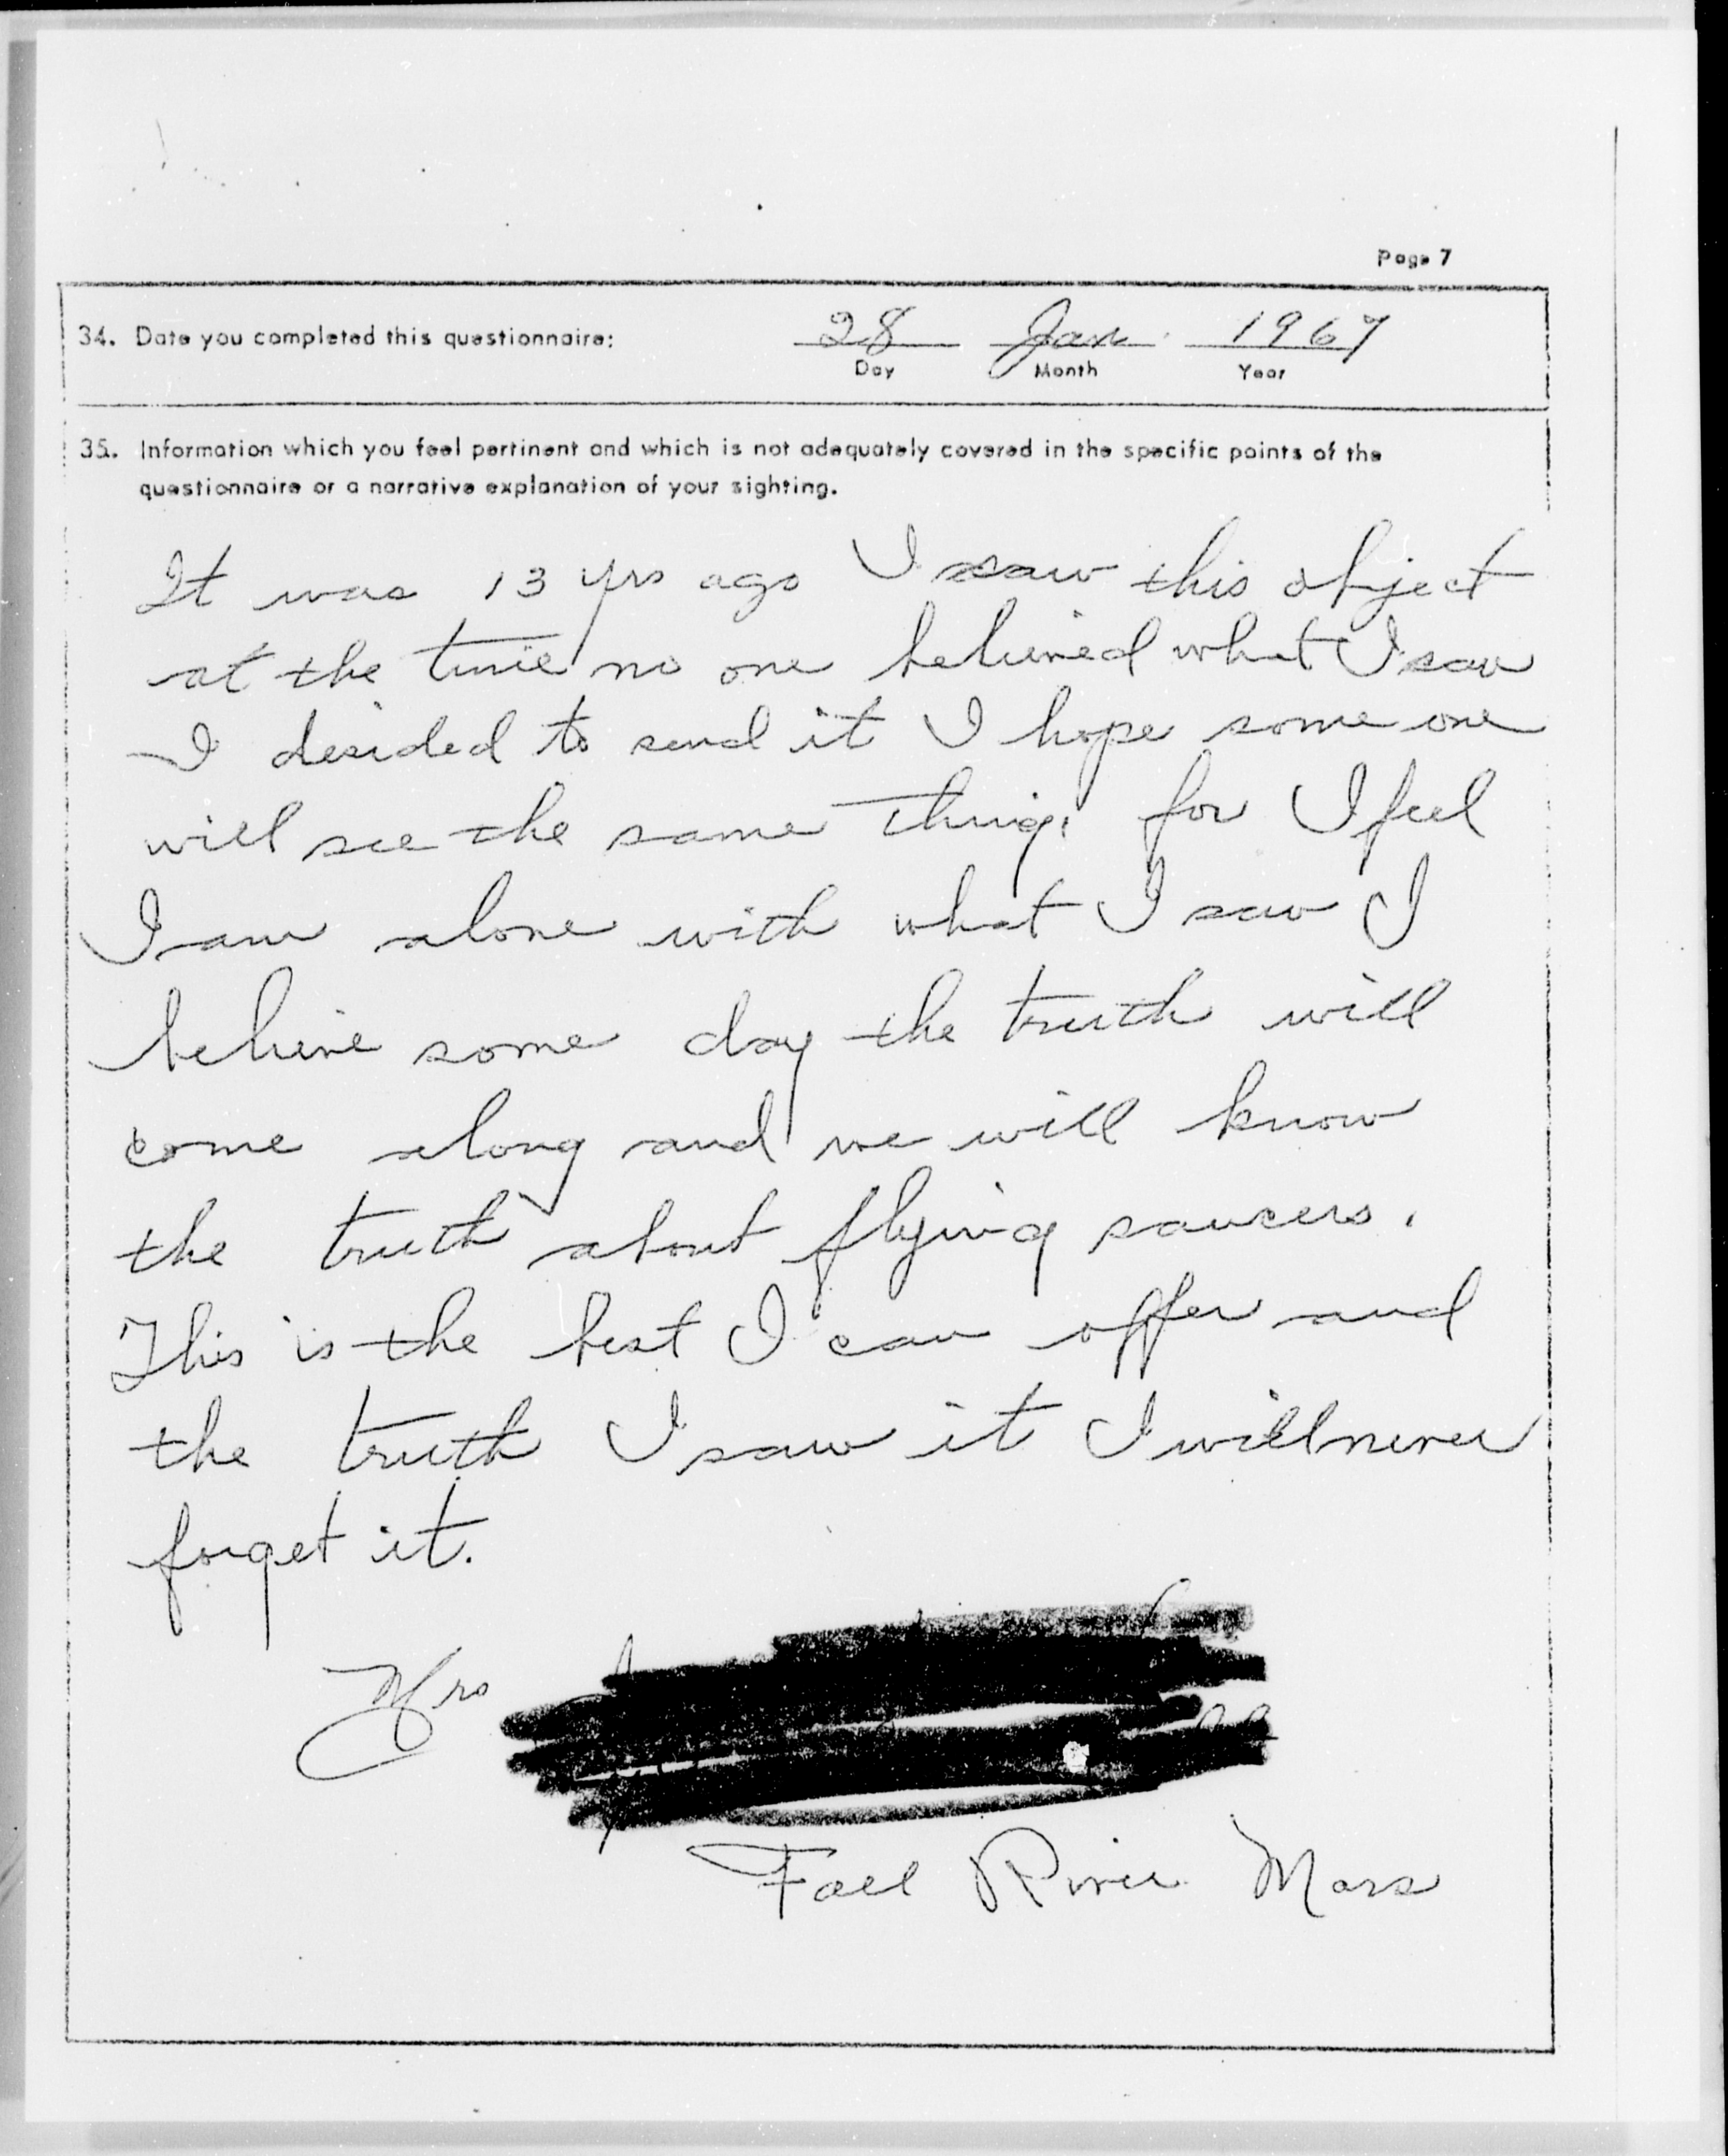 Page 7
34. Date you completed this questionnaire: 28 Jan 1967
Day Month Year
35. Information which you feel pertinent and which is not adequately covered in the specific points of the
questionnaire or a narrative explanation of your sighting.
It was 13 yrs ago I saw this object
at the time no one believed what I saw
I desided to send it I hope some one
will see the same thing. for I feel
I am alone with what I saw I
believe some day the truth will
come along and we will know
the truth about flying saucers.
This is the best I can offer and
the truth I saw it I will never
forget it.
Mrs
Fall River Mass